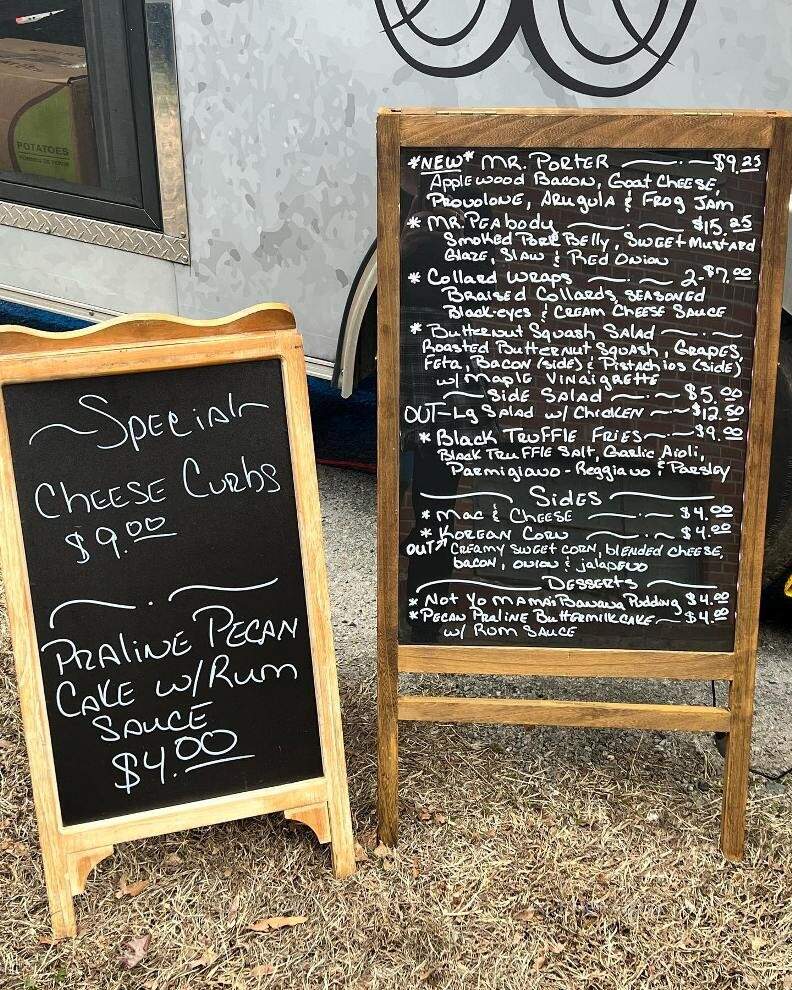 POTATOES
Special
Cheese Curbs
$9.00
Praline Pecan
Cake w/Rum
Sauce
$4.00
*NEW* Mr. Porter $9.25
Applewood Bacon, Goat Cheese,
Provolone, Arugula & Frog Jam
* Mr. Peabody $15.25
Smoked Pork Belly, Sweet Mustard
Glaze, Slaw & Red Onion
* Collard Wraps 2-$7.00
Braised Collards, seasoned
Black-eyes & Cream Cheese Sauce
* Butternut Squash Salad
Roasted Butternut Squash, Grapes,
Feta, Bacon (side) & Pistachios (side)
w/ Maple Vinaigrette
Side Salad $5.00
OUT-Lg Salad w/ Chicken $12.50
* Black Truffle Fries $9.00
Black Truffle Salt, Garlic Aioli,
Parmigiano-Reggiano & Parsley
Sides
* Mac & Cheese $4.00
* Korean Corn $4.00
OUT Creamy sweet corn, blended cheese,
bacon, onion & jalapeno
Desserts
* Not Yo Mama's Banana Pudding $4.00
* Pecan Praline Buttermilk Cake $4.00
w/ Rum Sauce